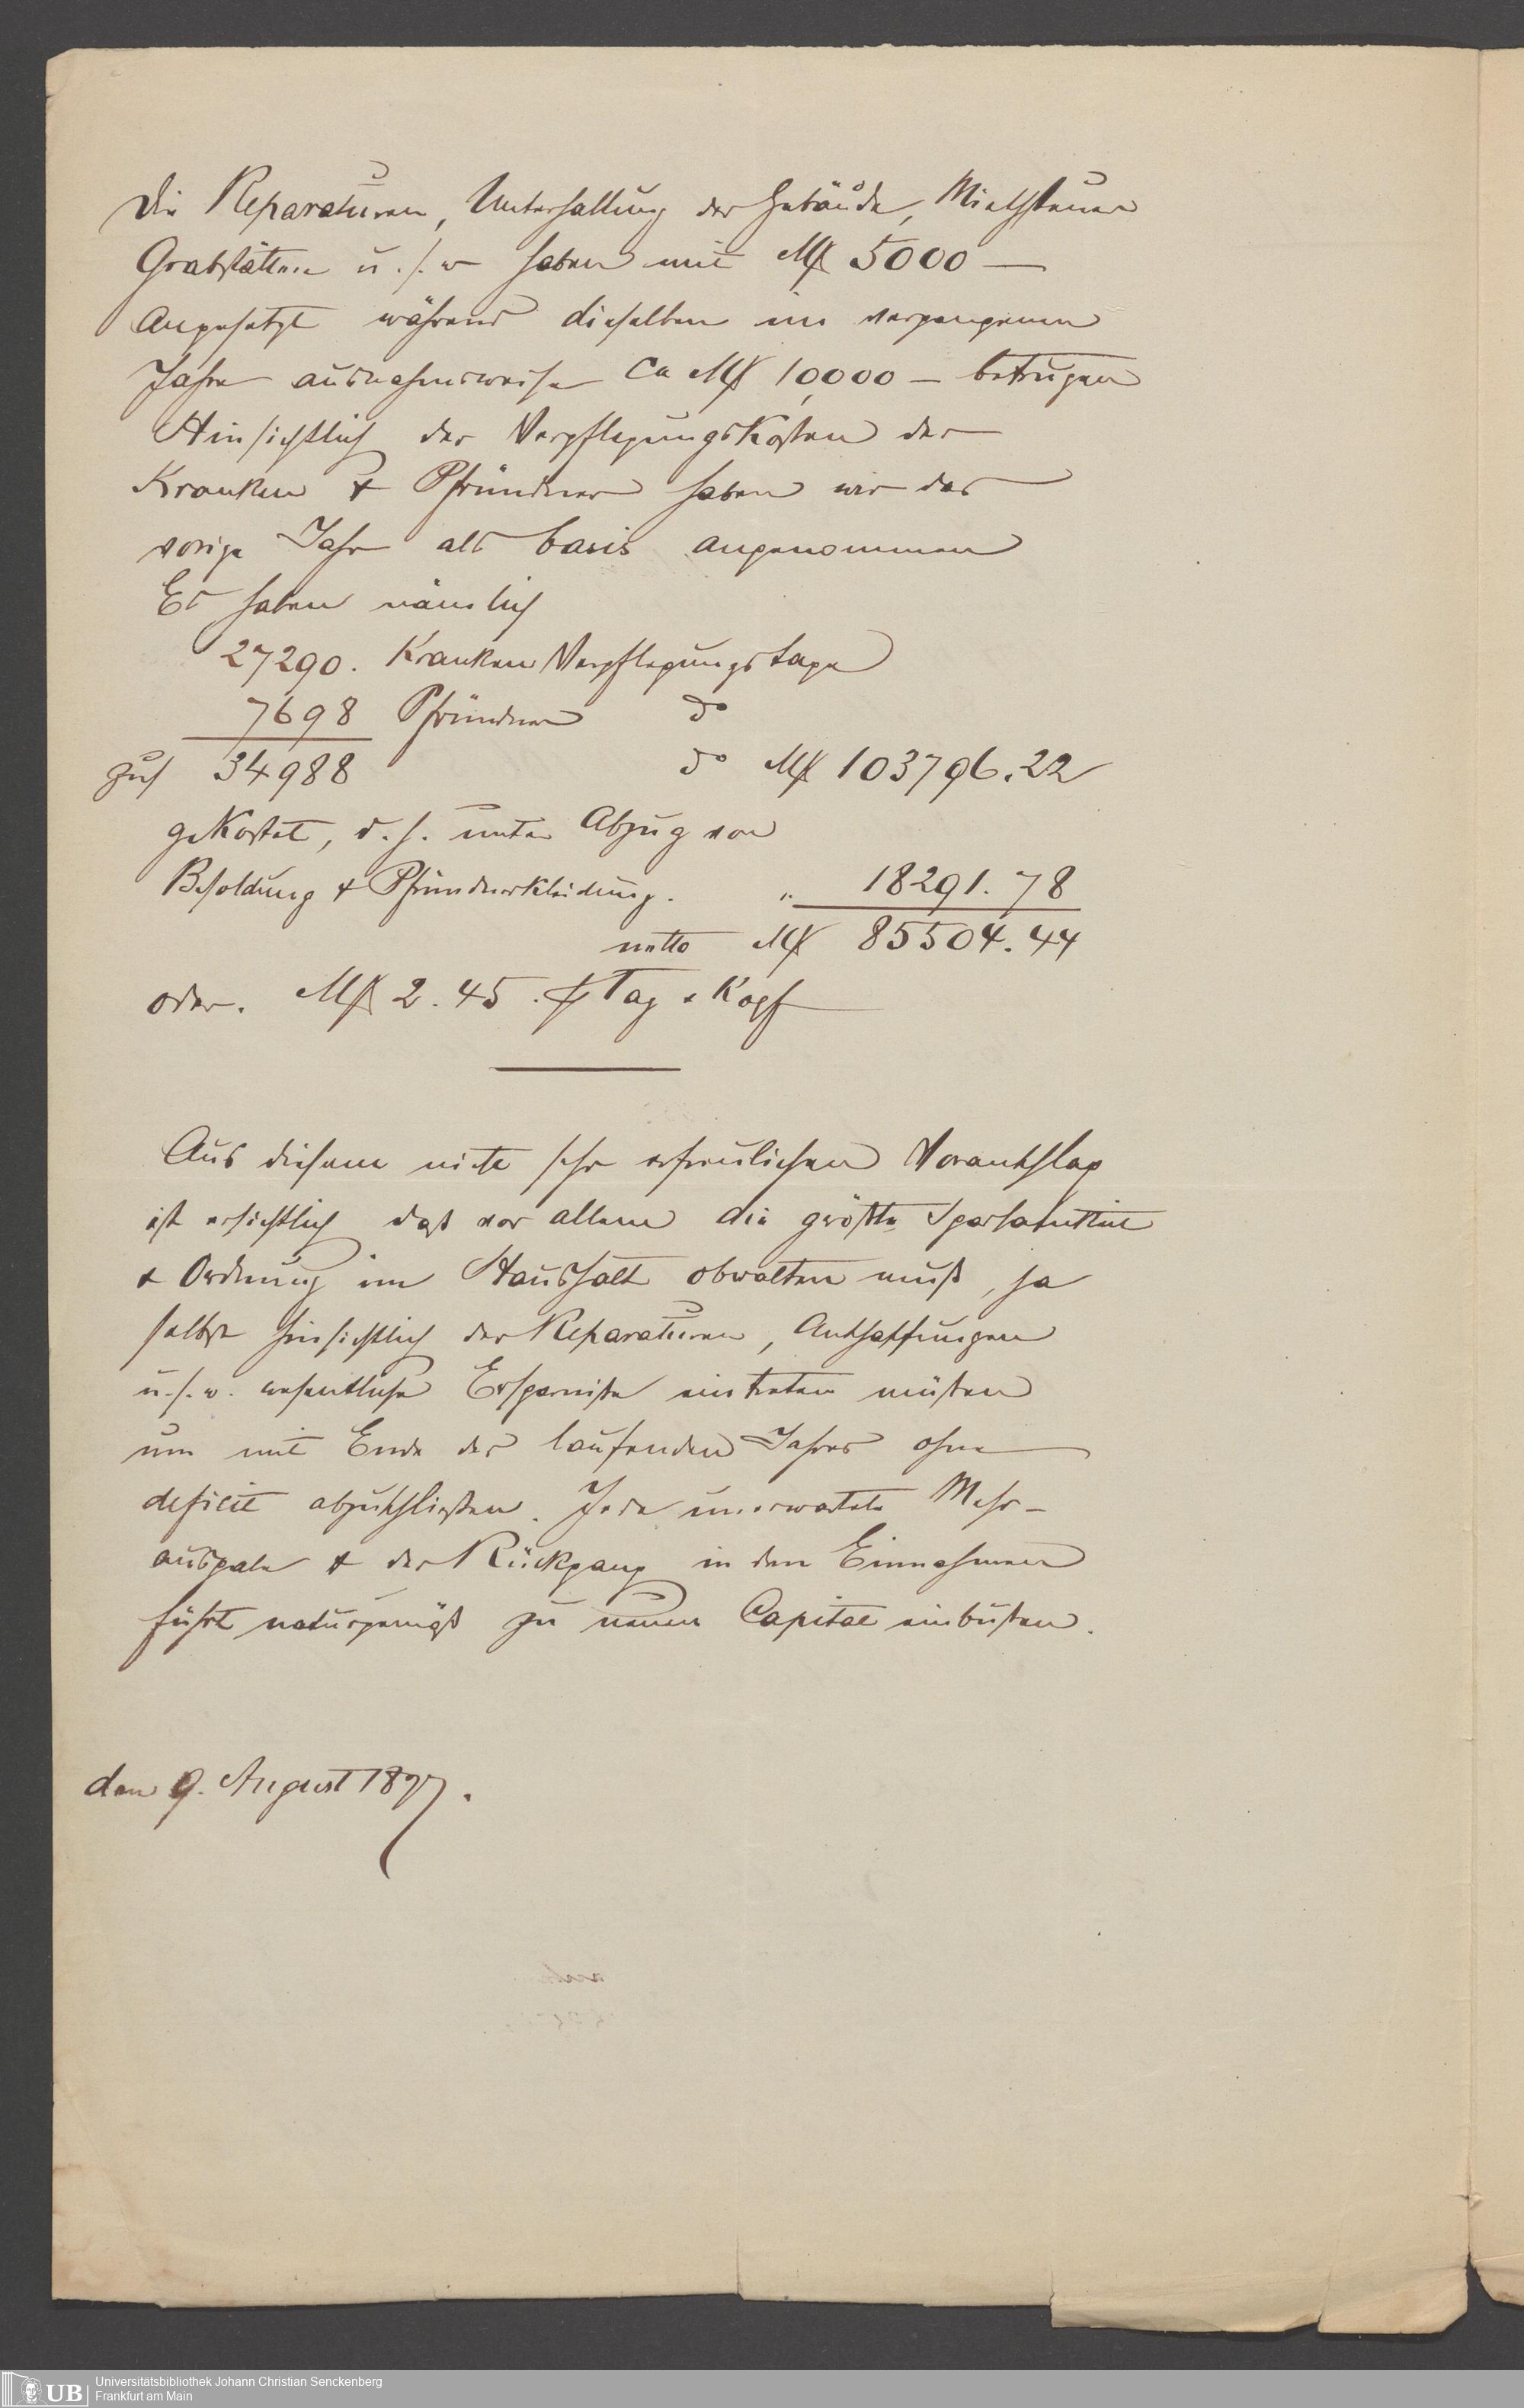 Die Reparaturen, Unterhaltung der Gebäude, Miethsteuer
Grabstätten u. s. w haben mit Mk 5000 —
angesetzt während dieselben im vergangenen
Jahre ausnahmsweise Ca Mk 10,000 — betrugen
Hinsichtlich der Verpflegungskosten der
Kranken & Pfründner haben wir das
vorige Jahr als basis angenommen
Es haben nämlich
27290. Kranken Verpflegungstage
7698 Pfründner do
zus 34988 do Mk 103796.22
gekostet, d. h. unter Abzug von
Besoldung & Pfründnerkleidung. " 18291.78
netto Mk 85504.44
oder. Mk 2.45. Tag & Kopf
Aus diesem nicht sehr erfreulichen Voranschlag
ist ersichtlich daß vor allem die größte Sparsamkeit
& Ordnung im Haushalt obwalten muß, ja
selbst hinsichtlich der Reparaturen, Anschaffungen
u. s. w. wesentliche Ersparniße eintreten müßen
um mit Ende des laufenden Jahres ohne
deficit abzuschließen. Jede unerwartete Mehr-
ausgabe & der Rückgang in den Einnahmen
führt naturgemäß zu neuen Capital einbußen.
den 9. August 1897.
UB
Universitätsbibliothek Johann Christian Senckenberg
Frankfurt am Main